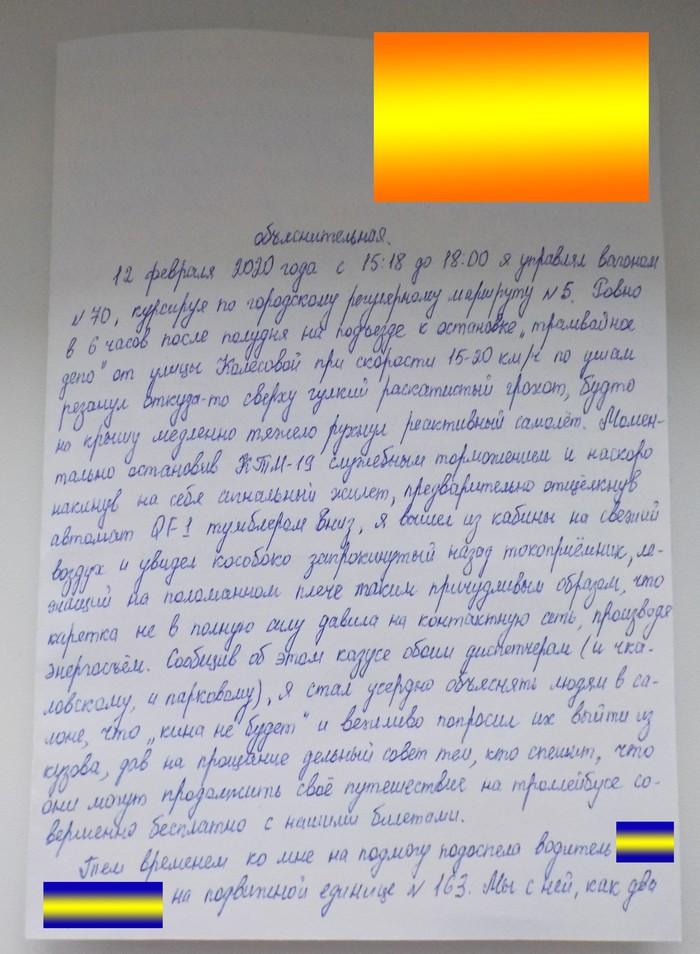 объяснительная.
12 февраля 2020 года с 15:18 до 18:00 я управлял вагоном
№70, курсируя по городскому регулярному маршруту №5. Ровно
в 6 часов после полудня на подъезде к остановке „трамвайное
депо" от улицы Колесовой при скорости 15-20 км/ч по ушам
резанул откуда-то сверху гулкий раскатистый грохот, будто
на крышу медленно тяжело рухнул реактивный самолёт. Момен-
тально остановив КТМ-19 служебным торможением и наскоро
накинув на себя сигнальный жилет, предварительно отщёлкнув
автомат QF1 тумблером вниз, я вышел из кабины на свежий
воздух и увидел кособоко запрокинутый назад токоприёмник, ле-
жащий на поломанном плече таким причудливым образом, что
каретка не в полную силу давила на контактную сеть, производя
энергосъём. Сообщив об этом казусе обоим диспетчерам (и чка-
ловскому, и парковому), я стал усердно объяснять людям в са-
лоне, что „кина не будет" и вежливо попросил их выйти из
кузова, дав на прощание дельный совет тем, кто спешит, что
они могут продолжить своё путешествие на троллейбусе со-
вершенно бесплатно с нашими билетами.
Тем временем ко мне на подмогу подоспела водитель
на подвижной единице №163. Мы с ней, как два